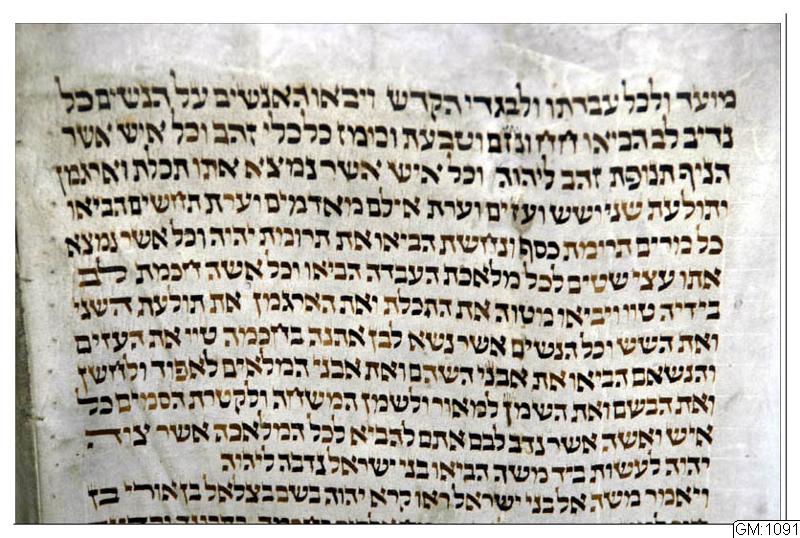 מועד ולכל עבדתו ולבגדי הקדש ויבאו האנשים על הנשים כל
נדיב לב הביאו חח ונזם וטבעת וכומז כל כלי זהב וכל איש אשר
הניף תנופת זהב ליהוה וכל איש אשר נמצא אתו תכלת וארגמן
ותולעת שני ושש ועזים וערת אילם מאדמים וערת תחשים הביאו
כל מרים תרומת כסף ונחשת הביאו את תרומת יהוה וכל אשר נמצא
אתו עצי שטים לכל מלאכת העבדה הביאו וכל אשה חכמת לב
בידיה טוו ויביאו מטוה את התכלת ואת הארגמן את תולעת השני
ואת השש וכל הנשים אשר נשא לבן אתנה בחכמה טוו את העזים
והנשאם הביאו את אבני השהם ואת אבני המלאים לאפוד ולחשן
ואת הבשם ואת השמן למאור ולשמן המשחה ולקטרת הסמים כל
איש ואשה אשר נדב לבם אתם להביא לכל המלאכה אשר צוה
יהוה לעשות ביד משה הביאו בני ישראל נדבה ליהוה
ויאמר משה אל בני ישראל ראו קרא יהוה בשם בצלאל בן אורי בן
GM:1091